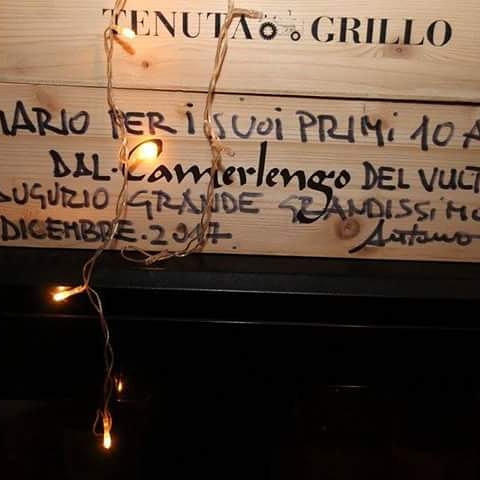 TENUTA GRILLO
MARIO PER I SUOI PRIMI 10 A
DAL Camerlengo DEL VULT
AUGURIO GRANDE GRANDISSIMO
DICEMBRE. 2017.